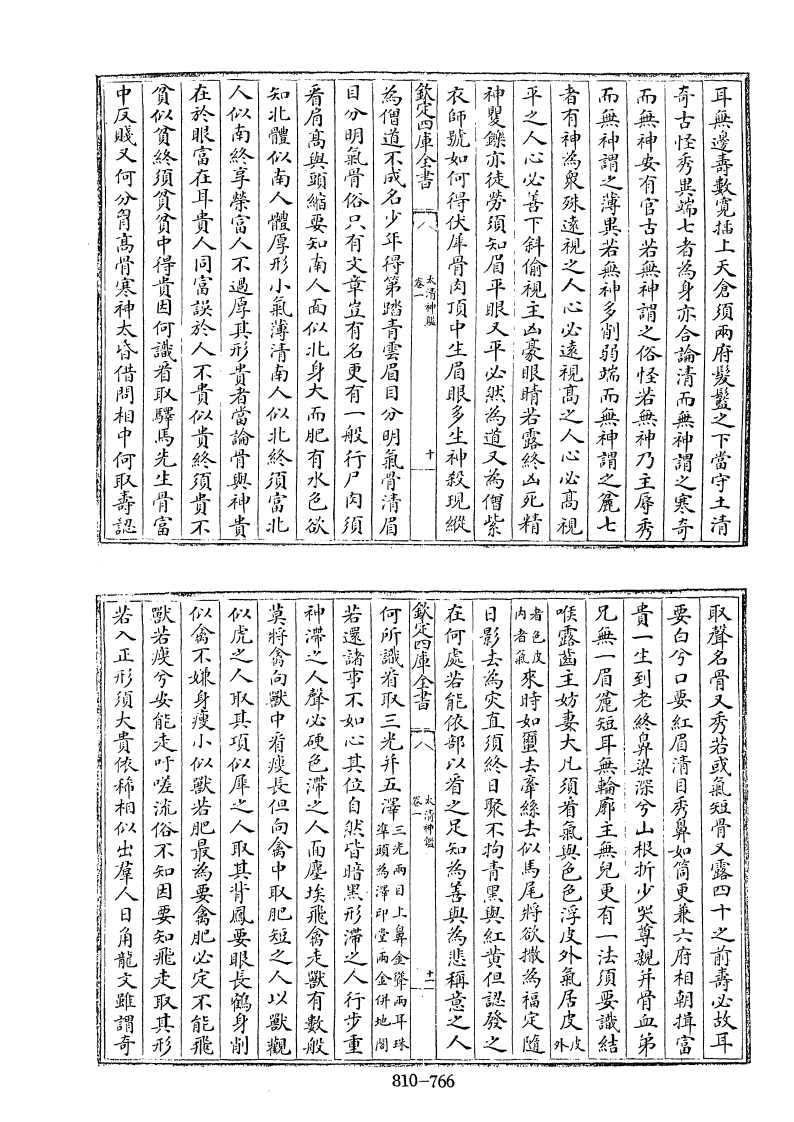 耳無邊壽數寬插上天倉須兩府髮鬢之下當守土清
奇古怪秀異端七者為身亦合論清而無神謂之寒奇
而無神安有官古若無神謂之俗怪若無神乃主辱秀
而無神謂之薄異若無神多削弱端而無神謂之麄七
者有神為衆殊遠視之人心必遠視高之人心必高視
平之人心必善下斜偷視主凶豪眼睛若露終凶死精
神矍鑠亦徒勞須知眉平眼又平必然為道又為僧紫
衣師號如何得伏犀骨肉頂中生眉眼多生神殺現縱
欽定四庫全書
太清神鑑
卷一
十
為僧道不成名少年得第踏青雲眉目分明氣骨清眉
目分明氣骨俗只有文章豈有名更有一般行尸肉須
看肩高與頭縮要知南人面似北身大而肥有水色欲
知北體似南人體厚形小氣薄清南人似北終須富北
人似南終享榮富人不過厚其形貴者當論骨與神貴
在於眼富在耳貴人同富誤於人不貴似貴終須貴不
貧似貧終須貧貧中得貴因何識看取驛馬先生骨富
中反賤又何分胷高骨寒神太昏借問相中何取壽認
取聲名骨又秀若或氣短骨又露四十之前壽必故耳
要白兮口要紅眉清目秀鼻如筒更兼六府相朝揖富
貴一生到老終鼻梁深兮山根折少哭尊親并骨血弟
兄無一眉麄短耳無輪廓主無兒更有一法須要識結
喉露齒主妨妻大凡須看氣與色色浮皮外氣居皮外皮
者色皮
内者氣來時如𧖟去牽絲去似馬尾將欲撒為福定隨
日影去為灾直須終日聚不拘青黑與紅黄但認發之
在何處若能依部以看之足知為善與為悲稱意之人
欽定四庫全書
太清神鑑
卷一
十一
何所識看取三光并五澤三光兩目上鼻金聳兩耳珠
準頭為澤印堂兩金併地閣
若還諸事不如心其位自然皆暗黑形滯之人行步重
神滯之人聲必硬色滯之人面塵埃飛禽走獸有數般
莫將禽向獸中看瘦長但向禽中取肥短之人以獸觀
似虎之人取其項似犀之人取其背鳳要眼長鶴身削
似禽不嫌身瘦小似獸若肥最為要禽肥必定不能飛
獸若瘦兮安能走吁嗟流俗不知因要知飛走取其形
若入正形須大貴依稀相似出羣人日角龍文雖謂奇
810-766